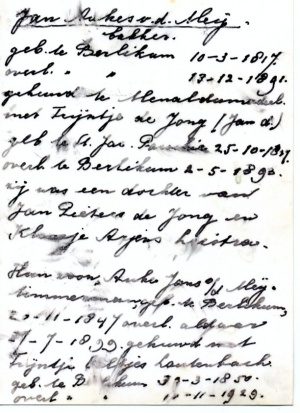 Jan Aukes v.d. Meij.
bakker.
geb. te Berlikum 10-3-1817.
overl. " " 13-12-1891.
gehuwd te Menaldumadeel
met Trijntje de Jong (Jan d.)
geb te St. Jac. Parochie 25-10-18
overl te Berlikum 2-5-1890.
zij was een dochter van
Jan Pieters de Jong en
Klaasje Arjens
Hun zoon, Auke Jans v/d Meij-
timmerman, geb. te Berlikum,
20-11-1847 overl. aldaar
-7-1899. gehuwd met
Trijntje Lautenbach.
geb. te B 3 -3-1850.
overl " " -11-1929.